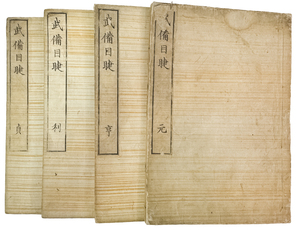 武備目睫
元
武備目睫
亨
武備目睫
利
武備目睫
貞